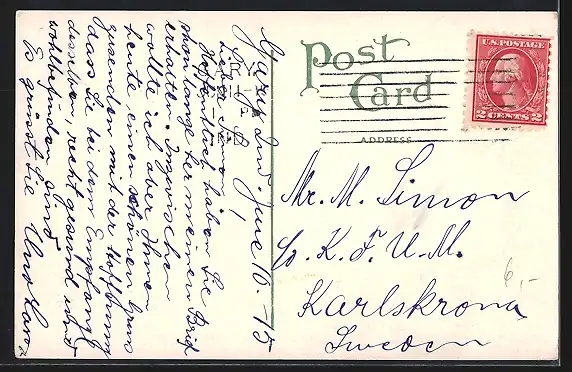 Gary, Ind June 10.-15
Liebe Simon!
Hoffentlich haben Sie
schon lange her meinen Brief
erhalten. Inzwischen
wollte ich aber Ihnen
heute einen schönen Gruss
zusenden mit der Hoffnung
dass Sie bei dem Empfang
desselben, recht gesund und
wohlbefinden sind.
Es grüsst Sie
Post
Card
ADDRESS
U.S. POSTAGE
2 CENTS 2
Mr. M. Simon
K. F. U. M.
Karlskrona
Sweden
6,-